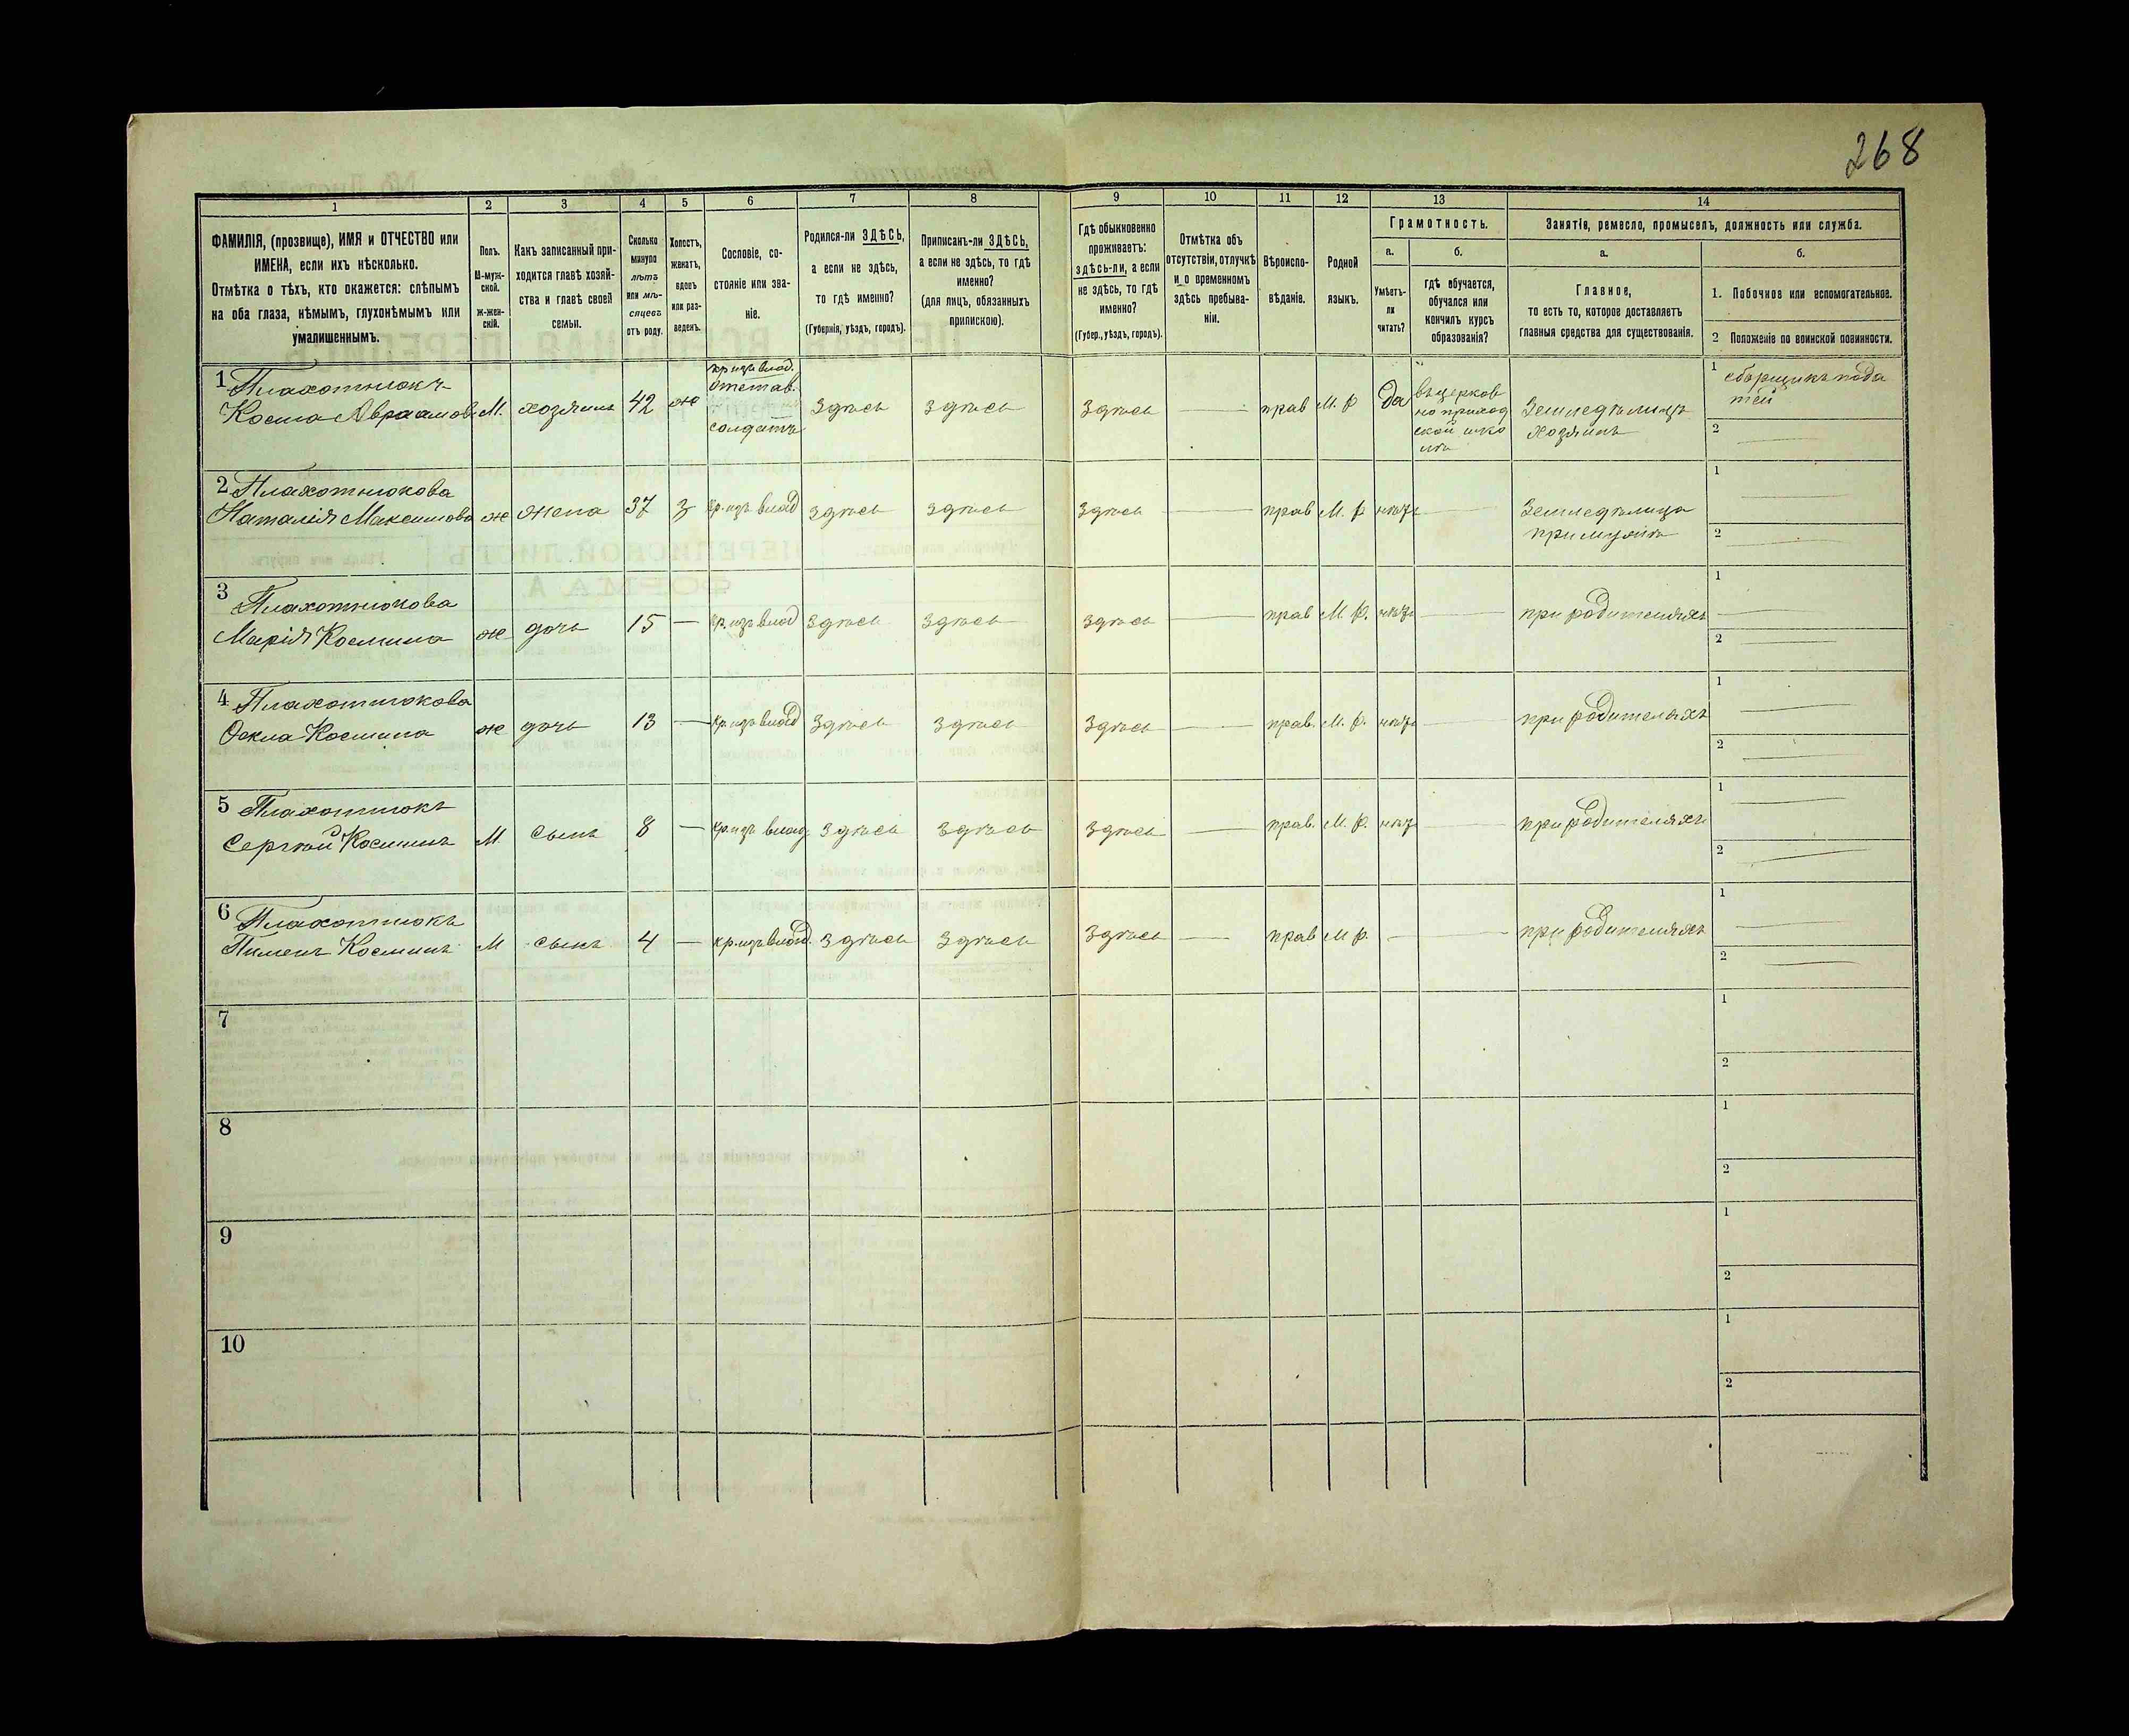 268
1 2 3 4 5 6 7 8 9 10 11 12 13 14
ФАМИЛІЯ, (прозвище), ИМЯ и ОТЧЕСТВО или
ИМЕНА, если ихъ нѣсколько.
Отмѣтка о тѣхъ, кто окажется: слѣпымъ
на оба глаза, нѣмымъ, глухонѣмымъ или
умалишеннымъ.
Полъ.
М-муж-
ской.
ж-жен-
скій.
Какъ записанный при-
ходится главѣ хозяй-
ства и главѣ своей
семьи.
Сколько
минуло
лѣтъ
или мѣ-
сяцевъ
отъ роду.
Холостъ,
женатъ,
вдовъ
или раз-
веденъ.
Сословіе, со-
стояніе или зва-
ніе.
Родился-ли ЗДѢСЬ,
а если не здѣсь,
то гдѣ именно?
(Губернія, уѣздъ, городъ).
Приписанъ-ли ЗДѢСЬ,
а если не здѣсь, то гдѣ
именно?
(для лицъ, обязанныхъ
припискою).
Гдѣ обыкновенно
проживаетъ:
здѣсь-ли, а если
не здѣсь, то гдѣ
именно?
(Губер., уѣздъ, городъ).
Отмѣтка объ
отсутствіи, отлучкѣ
и о временномъ
здѣсь пребыва-
ніи.
Вѣроиспо-
вѣданіе.
Родной
языкъ.
Грамотность.
а.
Умѣетъ-
ли
читать?
б.
гдѣ обучается,
обучался или
кончилъ курсъ
образованія?
Занятіе, ремесло, промыселъ, должность или служба.
а.
Главное,
то есть то, которое доставляетъ
главныя средства для существованія.
б.
1. Побочное или вспомогательное.
2 Положеніе по воинской повинности.
1 Плахотнюкъ
Косма Авраамовъ М. хозяинъ 42 ж
кр. изъ влад.
отстав.
солдатъ
здѣсь здѣсь здѣсь — прав М. р да
въ церков
но приход
ской шко
лѣ
Земледѣлецъ
хозяинъ
1 сборщикъ пода
тей
2 —
2 Плахотнюкова
Наталія Максимова ж жена 37 з кр. изъ влад здѣсь здѣсь здѣсь — прав М. р нѣтъ —
Земледѣлица
при мужѣ
1 —
2 —
3 Плахотнюкова
Марія Космина ж дочь 15 — кр. изъ влад здѣсь здѣсь здѣсь — прав М. р. нѣтъ — при родителяхъ
1 —
2 —
4 Плахотнюкова
Ѳекла Космина ж дочь 13 — кр. изъ влад здѣсь здѣсь здѣсь — прав. М. р. нѣтъ — при родителяхъ
1 —
2 —
5 Плахотнюкъ
Сергѣй Косминъ М. сынъ 8 — кр. изъ влад здѣсь здѣсь здѣсь — прав. М. р. нѣтъ — при родителяхъ
1 —
2 —
6 Плахотнюкъ
Пименъ Косминъ М сынъ 4 — кр. изъ влад здѣсь здѣсь здѣсь — прав М р. — — при родителяхъ
1 —
2 —
7
1
2
8
1
2
9
1
2
10
1
2